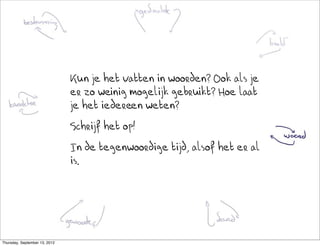 gedachte
bestemming
beeld
Kun je het vatten in woorden? Ook als je
er zo weinig mogelijk gebruikt? Hoe laat
je het iedereen weten?
boodschap
woord
Schrijf het op!
In de tegenwoordige tijd, alsof het er al
is.
gewoonte
daad
Thursday, September 13, 2012